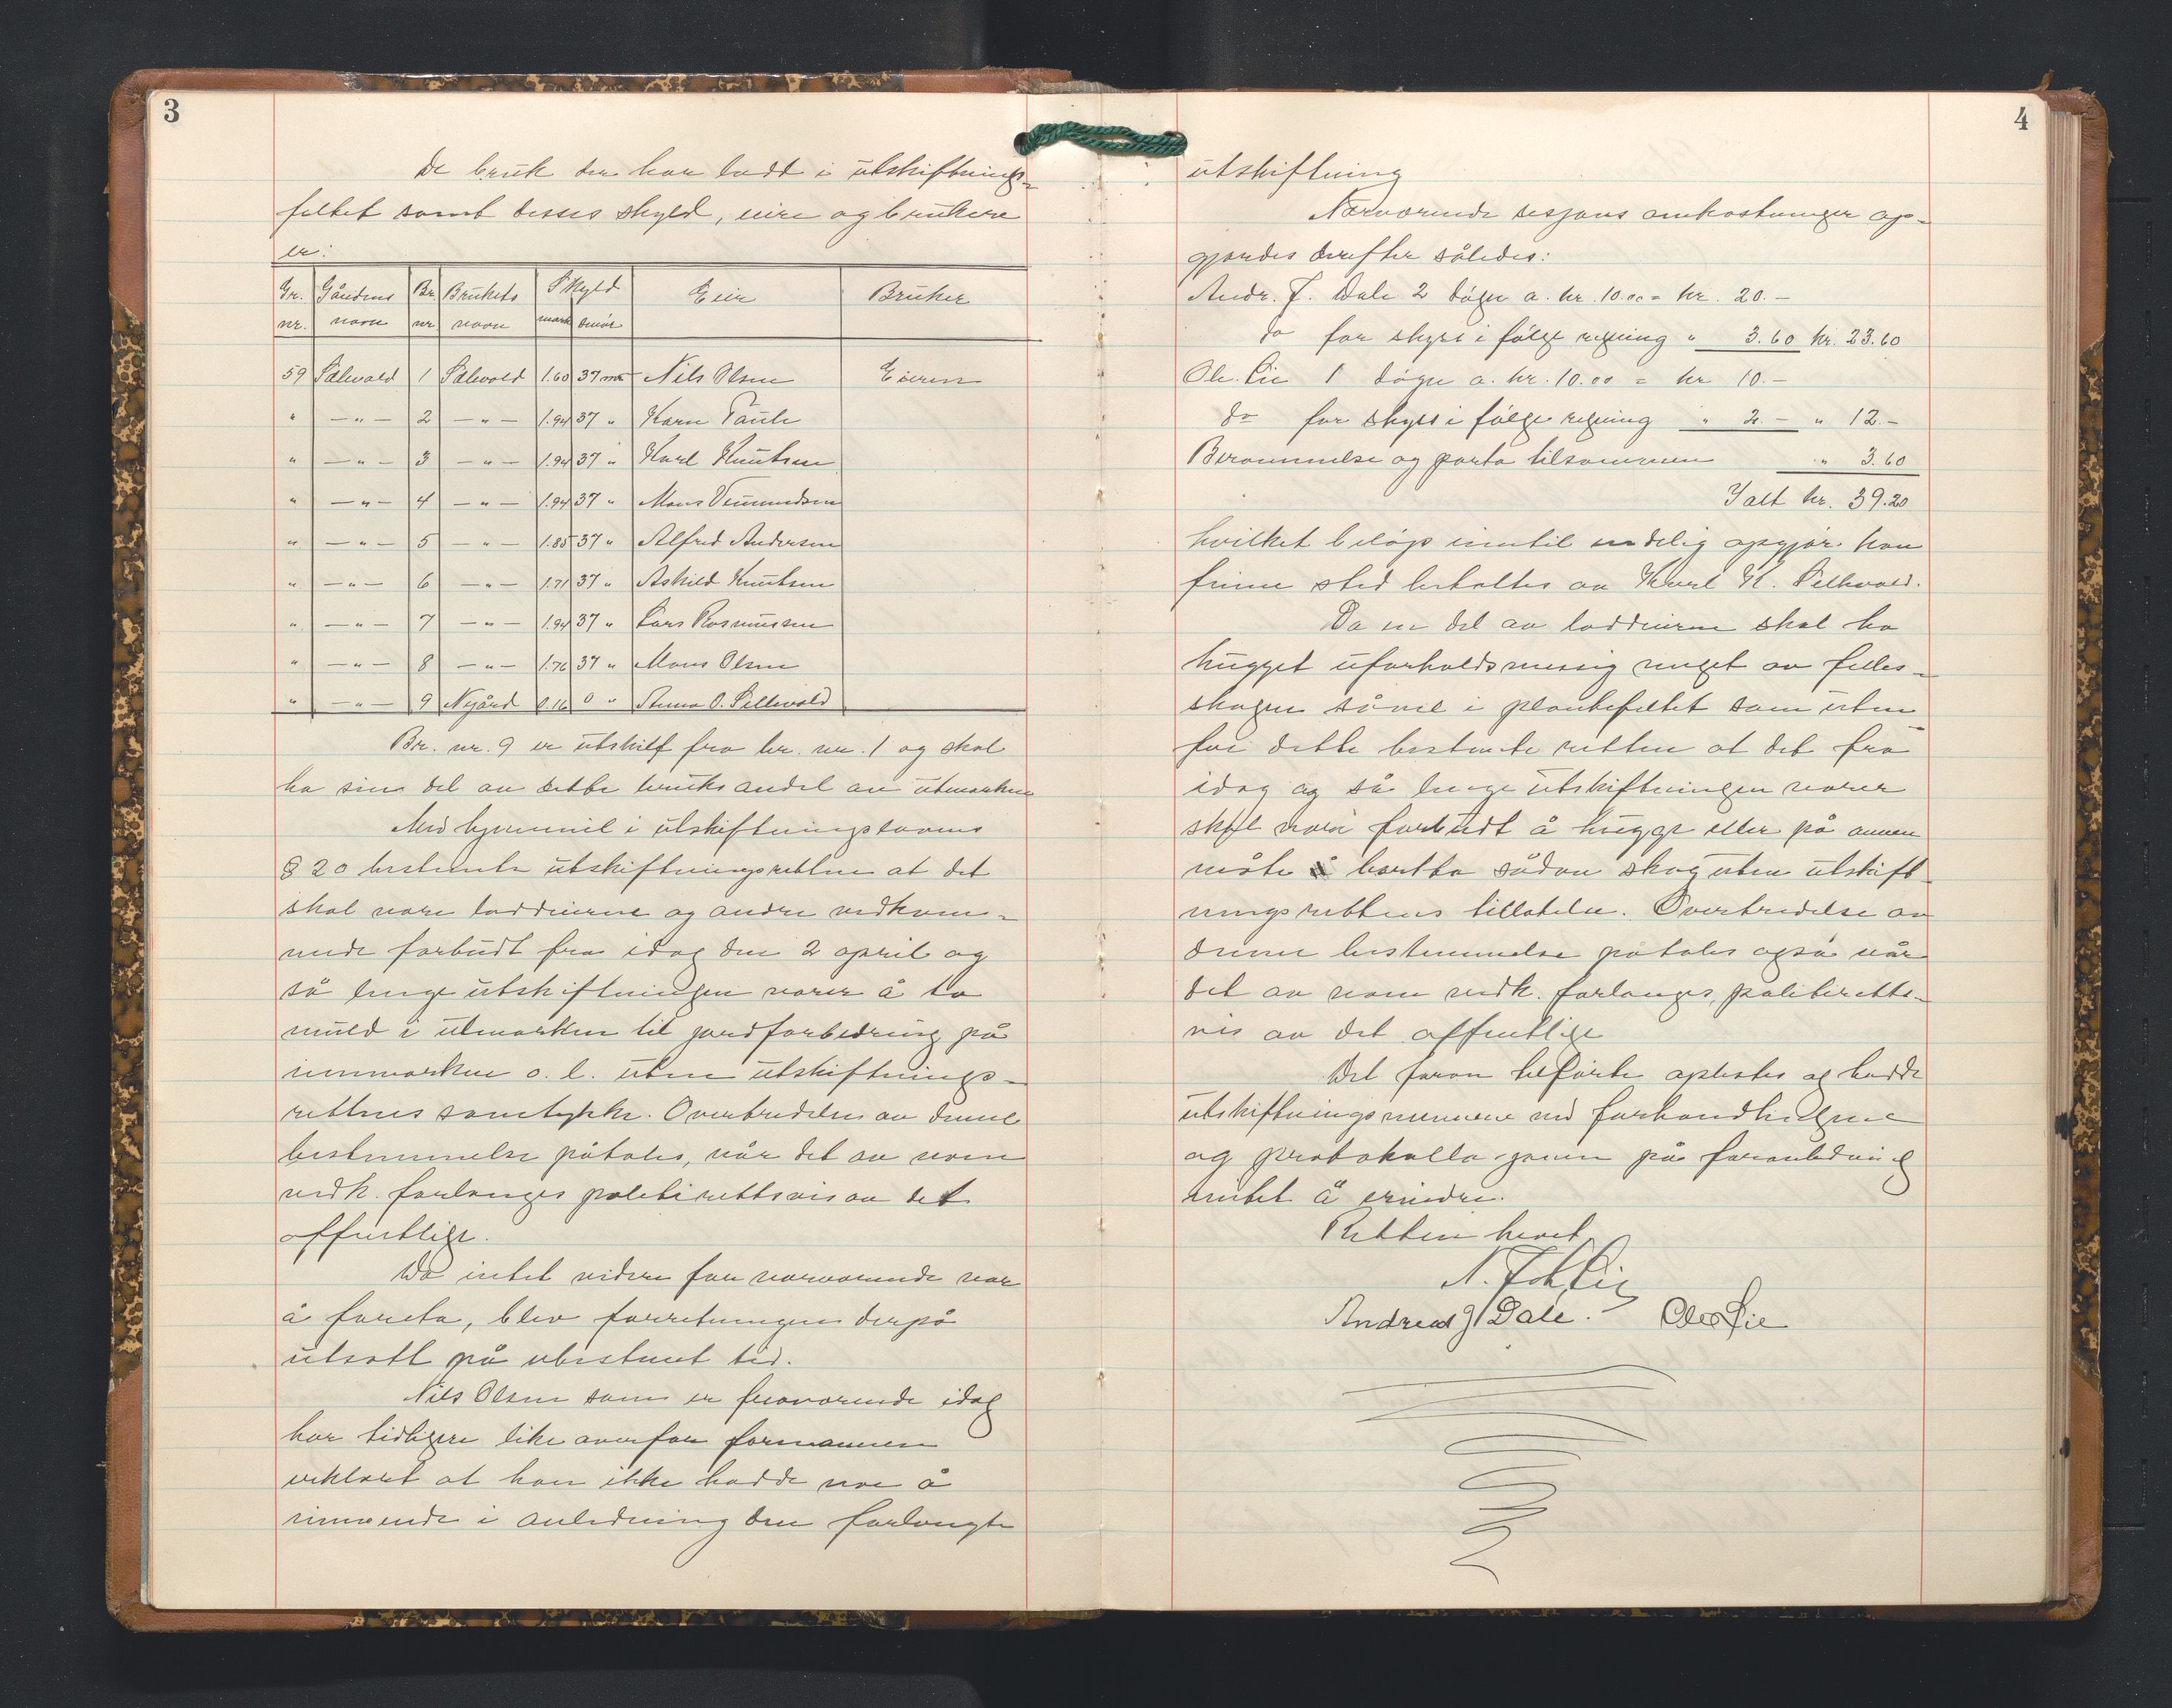 3
De bruk der har lodd i utskiftnings-
feltet samt disses skyld, eiere og brukere
er:
Gr. nr. | Gårdens navn | Br. nr. | Brukets navn | Skyld mark | Smör | Eier | Bruker
59 | Sælevold | 1 | Sælevold | 1.60 | 37 mr | Nils Olsen | Eieren
" | —"— | 2 | —"— | 1.94 | 37 " | Karn Paule
" | —"— | 3 | —"— | 1.94 | 37 " | Karl Knutsen
" | —"— | 4 | —"— | 1.94 | 37 " | Mons Vemundsen
" | —"— | 5 | —"— | 1.85 | 37 " | Alfred Andersen
" | —"— | 6 | —"— | 1.71 | 37 " | Askild Knutsen
" | —"— | 7 | —"— | 1.94 | 37 " | Lars Rasmussen
" | —"— | 8 | —"— | 1.76 | 37 " | Mons Olsen
" | —"— | 9 | Nygård | 0.16 | 0 " | Anna O. Sellevold
Br. nr. 9 er utskilt fra br. nr. 1 og skal
ha sin del av dette bruks andel av utmarken
Med hjemmel i utskiftningslovens
§ 20 bestemte utskiftningsretten at det
skal være loddeierne og andre vedkom-
mende forbudt fra idag den 2 april og
så lenge utskiftningen varer å ta
muld i utmarken til jordforbedring på
innmarken o. l. uten utskiftnings-
rettens samtykke. Overtredelse av denne
bestemmelse påtales, når det av noen
vedk. forlanges politirettsvis av det
offentlige.
Da intet videre for nærværende var
å foreta, blev forretningen derpå
utsatt på ubestemt tid.
Nils Olsen som er fraværende idag
har tidligere like overfor formannen
erklært at han ikke hadde noe å
innvende i anledning den forlangte
4
utskiftning
Nærværende sesjons omkostninger op-
gjordes derefter således:
Andr. J. Dale 2 døgn a. kr. 10.00 = kr. 20.-
do for skyss i følge regning " 3.60 kr. 23.60
Ole Lie 1 døgn a. kr. 10.00 = kr 10.-
do for skyss i følge regning " 2.- " 12.-
Berammelse og porto tilsammen " 3.60
Ialt kr. 39.20
hvilket beløp inntil endelig opgjør kan
finne sted betaltes av Karl K. Sellevold.
Da en del av loddeierne skal ha
hugget uforholdsmessig meget av felles-
skogen såvel i plantefeltet som uten-
for dette bestemte retten at det fra
idag og så lenge utskiftningen varer
skal være forbudt å hugge eller på annen
måte å bortta sådan skog uten utskift-
ningsrettens tillatelse. Overtredelse av
denne bestemmelse påtales også når
det av noen vedk. forlanges, politiretts-
vis av det offentlige
Det foran tilførte oplestes og hadde
utskiftningsmennene ved forhandlingene
og protokollasjonen på foranledning
intet å erindre.
Retten hevet
N. Joh Lie
Andreas J Dale. Ole Lie